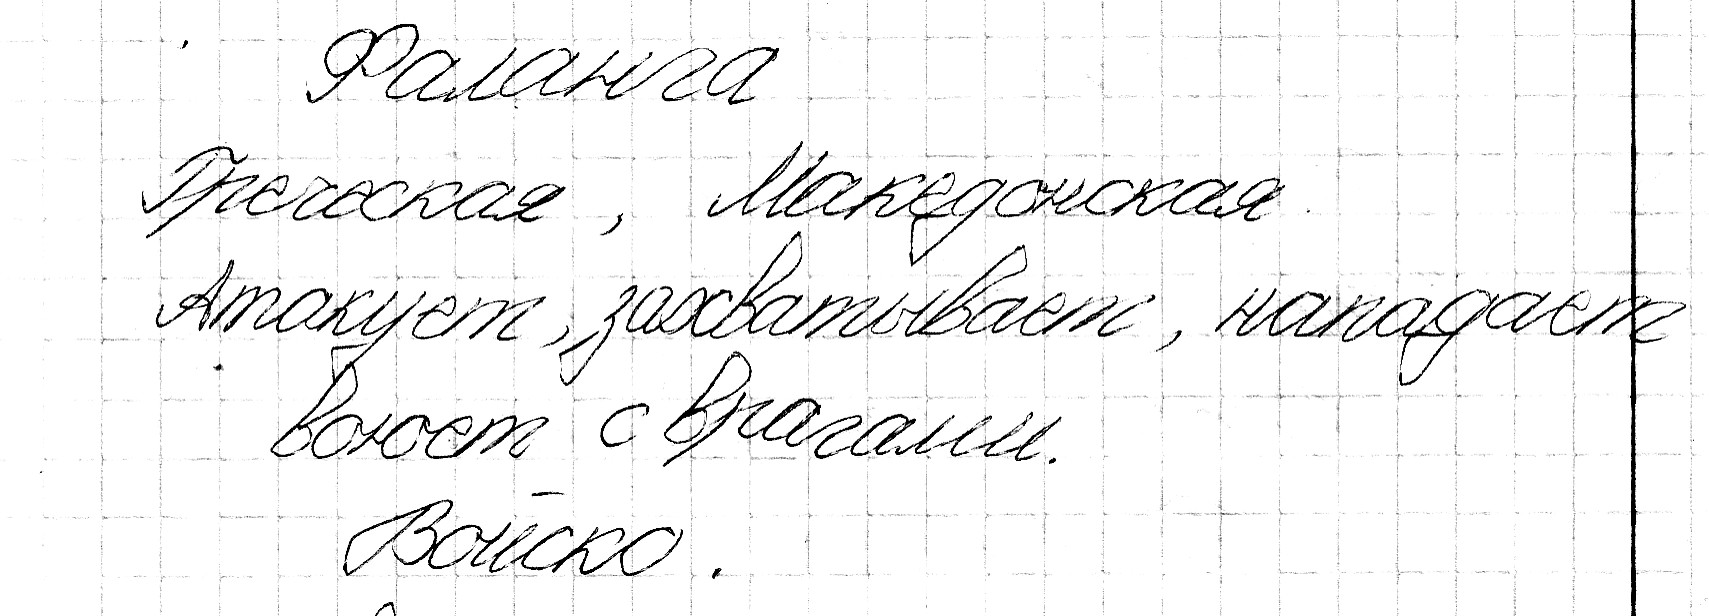 Фаланга
Греческая, Македонская
Атакует, захватывает, нападает
Воюет с врагами.
Войско.